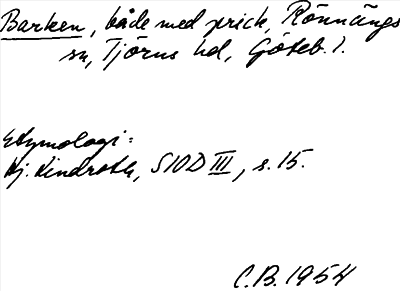 Barken, både med prick, Rönnängs
sn, Tjörns hd, Göteb. l.
Etymologi:
Hj. Lindroth, SIOD III, s. 15.
C.B. 1954